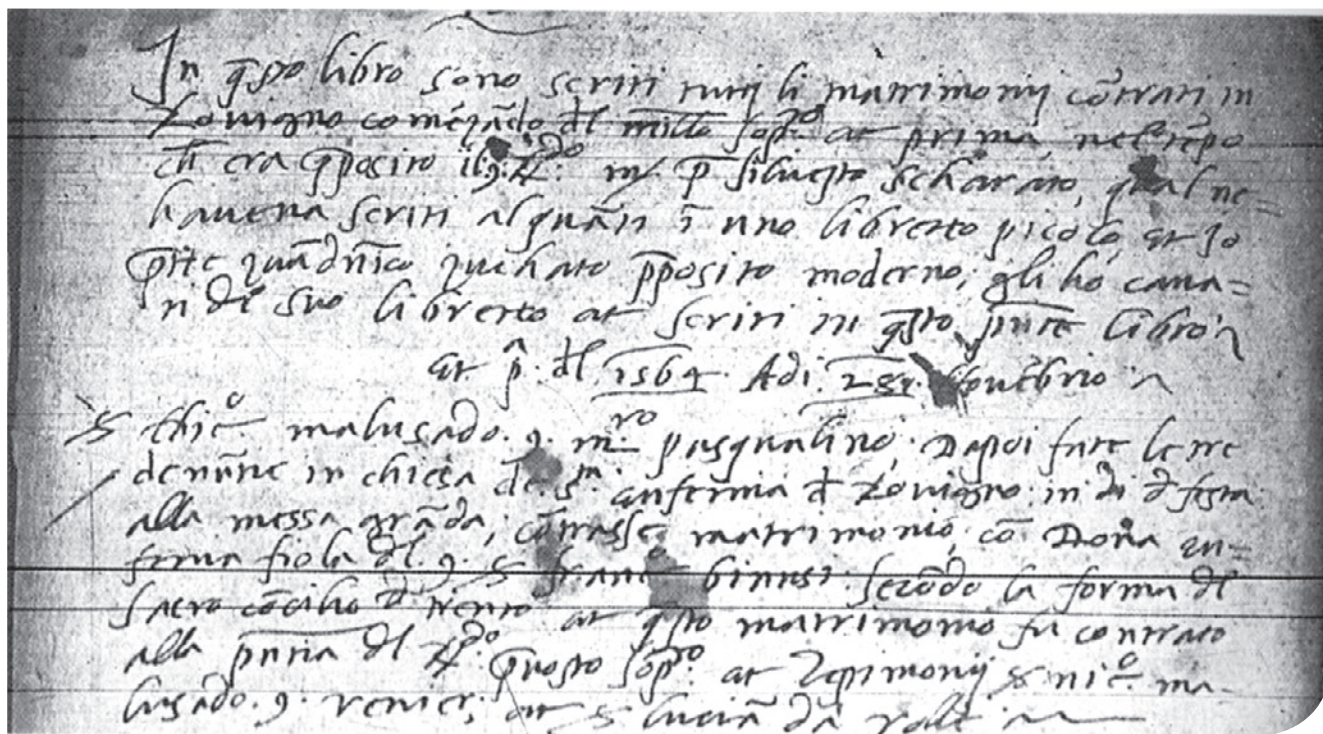 In q̄sto libro sono scriti tutij li matrimonij cōtrati in
Rouigno comēzādo d̄l mill̄o sop.ᵗᵒ at prima, nel tēpo
ch̄ era p̄posito il q. R.ᵈᵒ m̄ p̄ Siluestro Scharato, qual ne=
haueua scriti alquāti ī uno libretto picolo, et Jo
p̄ite p̄posito moderno, gli ho caua=
ti d̄l suo libretto at scriti in q̄sto p̄nte libro
at p̄. d̄l 1564. Adi. Nouēbrio
S malusado. q. m.ʳᵒ pasqualino. Dapoi fate le tre
denūtie in chiesa d̄e S.ᵗᵃ eufemia d̄ Rouigno in di d̄ festa
alla messa grāda, cōtrasse matrimonio, cō Dona eu=
femia fiola d̄l. q. S frāc.º binusi. Secōdo la forma d̄l
Sacro cōcilio d̄ trento at q̄sto matrimonio fu contrato
alla p̄ntia d̄l R.ᵈᵒ p̄uosto sop.ᵗᵒ at Tesṭimonij S nic.º ma=
lusado. q. venier, at S luciā da